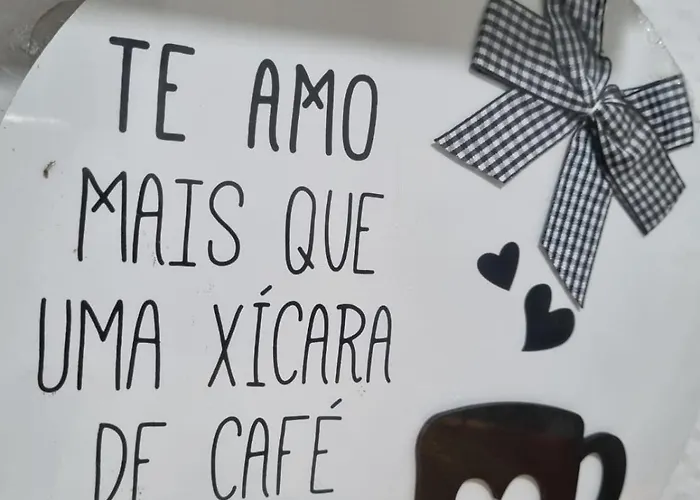 TE AMO
MAIS QUE
UMA XÍCARA
DE CAFÉ